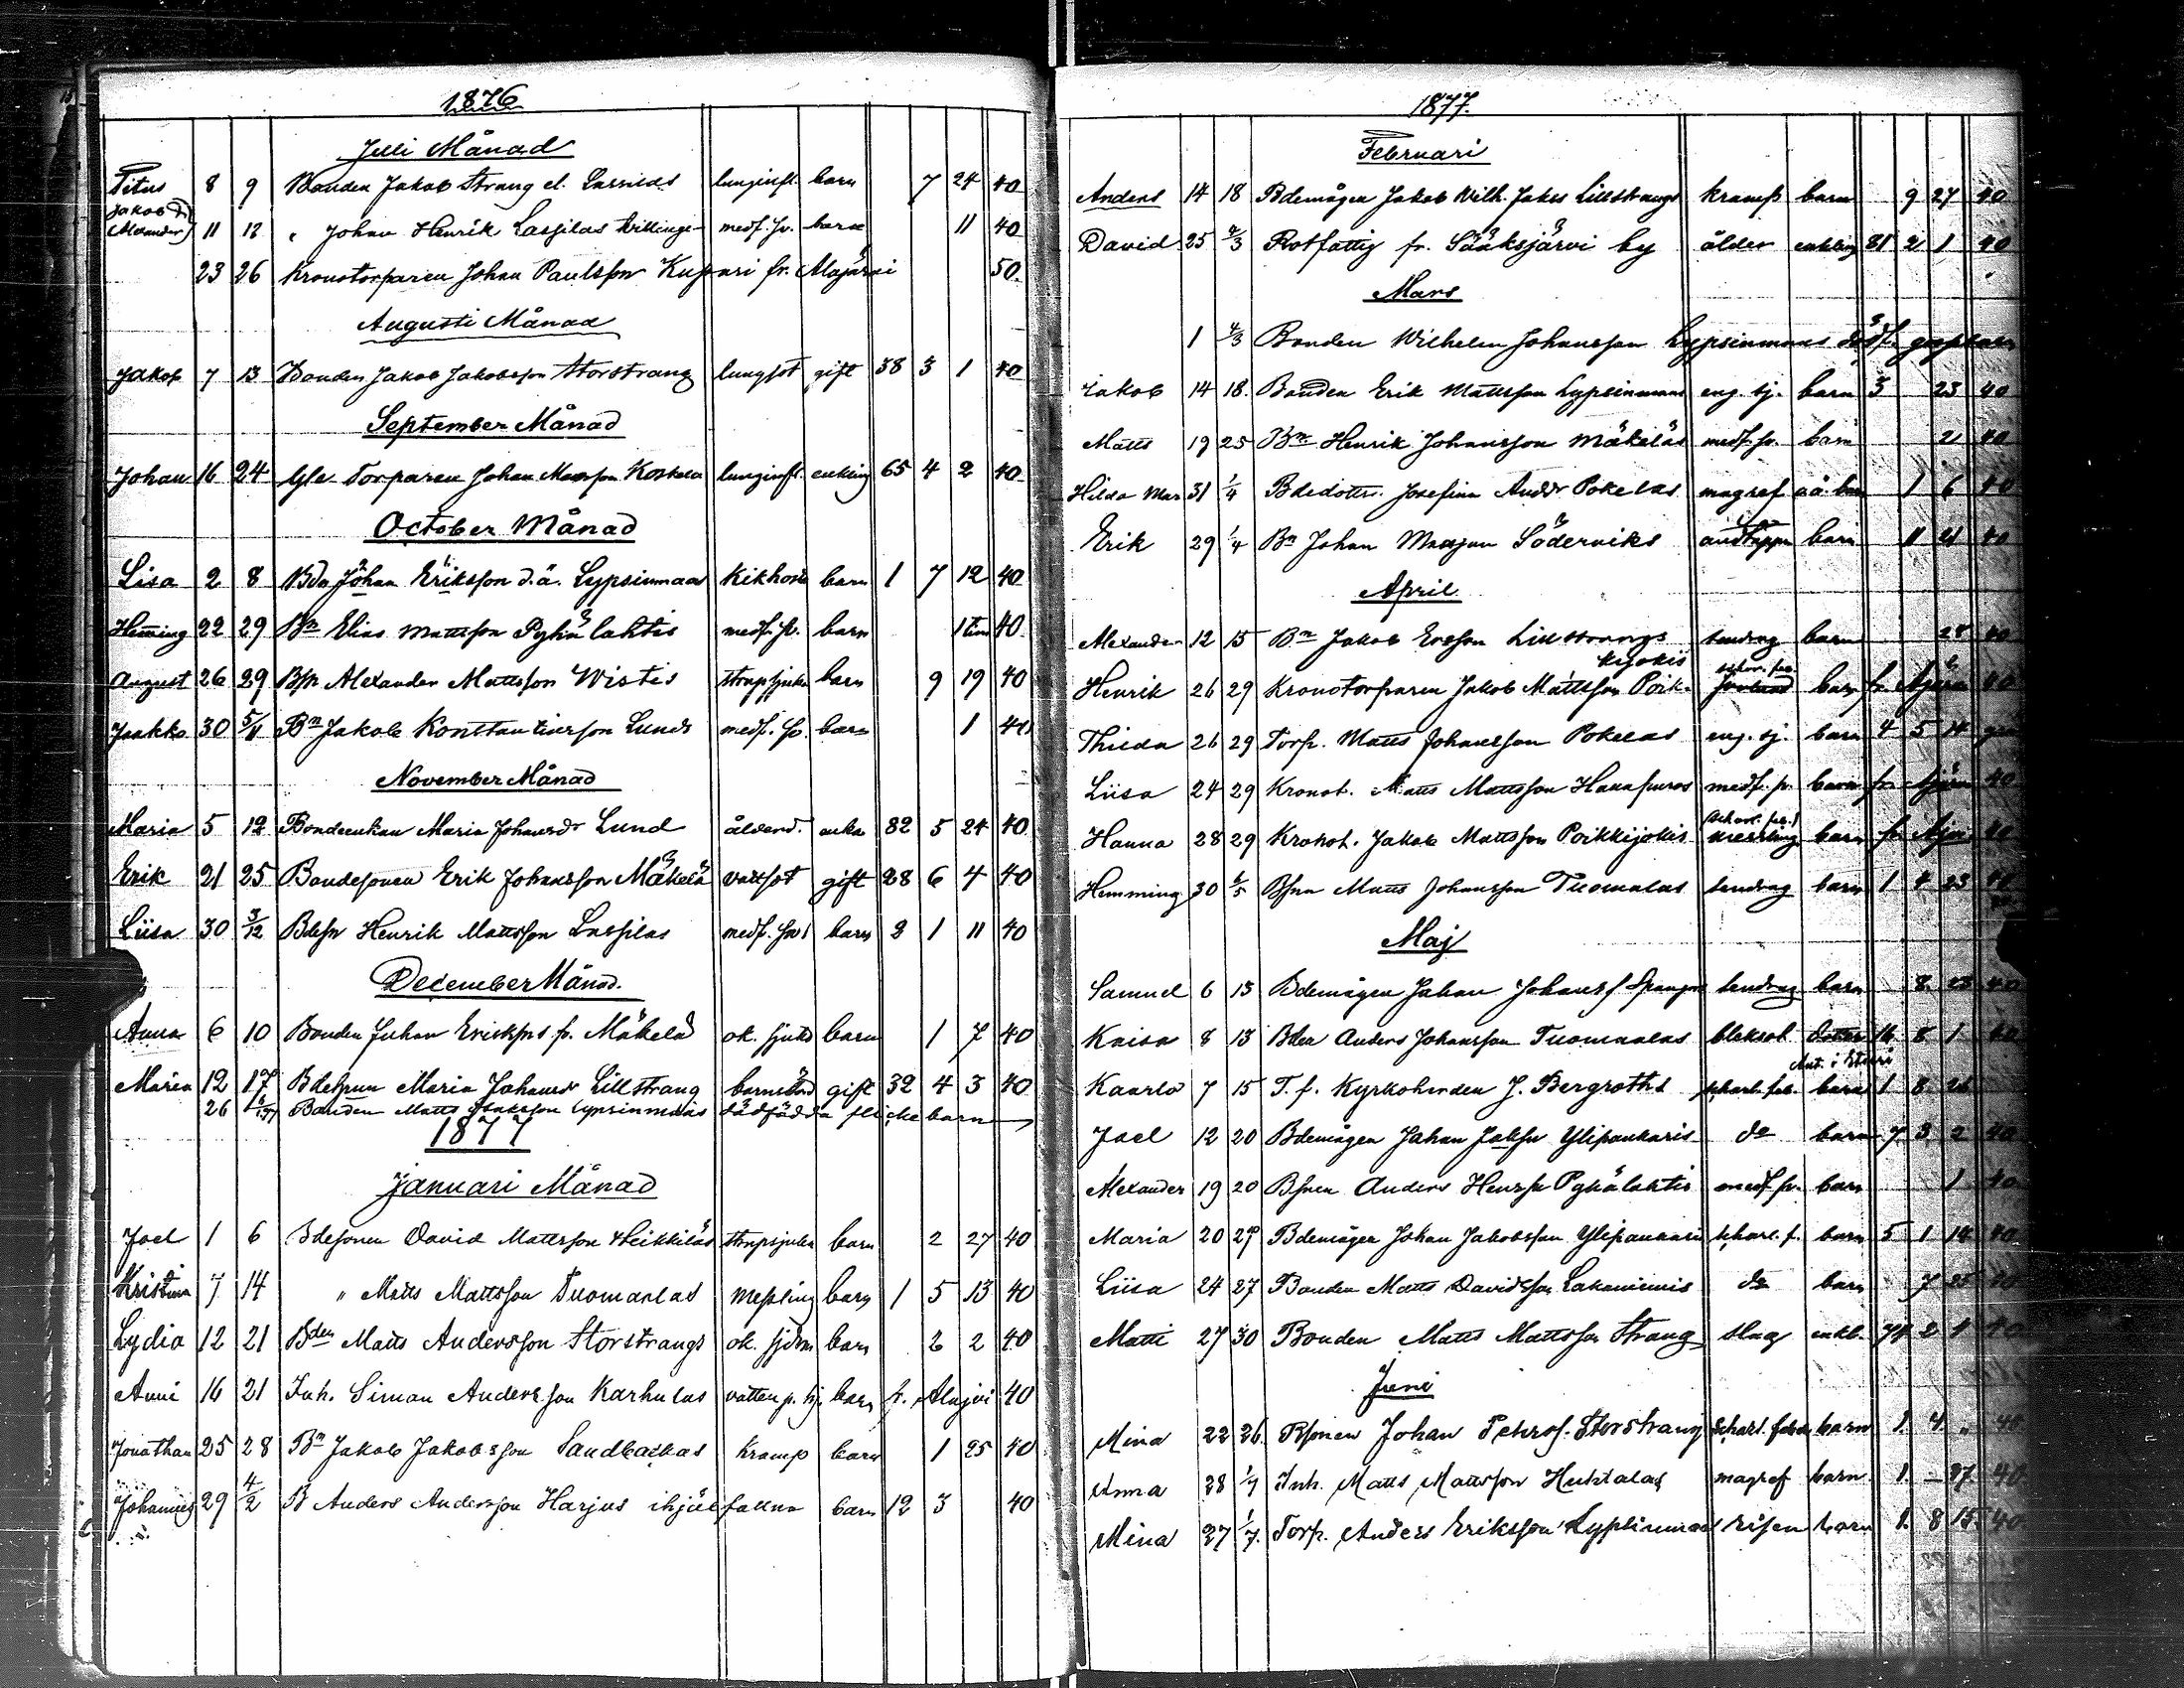 1876
Juli Månad
Titus 8 9 Bonden Jakob Strang el. Lassilas lunginfl. barn 7 24 40
Jakob &
Alexander 11 12 " Johan Henrik Lassilas tvillinge- medf. sv. barn 11 40
23 26 Kronotorparen Johan Paulsson Kuppari fr. 50
Augusti Månad
Jakob 7 13 Bonden Jakob Jakobsson Storstrang lungsot gift 38 3 1 40
September Månad
Johan 16 24 Gle Torparen Johan Koskela lunginfl. enkling 65 4 2 40
October Månad
Lisa 2 8 Bdn Johan Eriksson d.ä. Lypsinmaa Kikhosta barn 1 7 12 40
Hemming 22 29 Bn Elias Mattsson Pyhälahtis medf. sv. barn 1 tim 40
August 26 29 Bsn Alexander Mattsson Wistis strupsjuka barn 9 19 40
Jaakko 30 5/11 Bn Jakob Konstantinsson Lunds medf. sv. barn 1 40
November Månad
Maria 5 12 Bondeenkan Maria Johansdr Lund ålderd. enka 82 5 24 40
Erik 21 25 Bondesonen Erik Johansson Mäkelä vattsot gift 28 6 4 40
Liisa 30 3/12 Bdesn Henrik Mattsson Lassilas medf. barn 2 1 11 40
December Månad.
Anna 6 10 Bonden Juhan fr. Mäkelä ok. sjukd barn 1 7 40
Maria 12 17 Bdehrun Maria Johansdr Lillstrang barnsbörd gift 32 4 3 40
26 Bonden Matts Lypsinmaas dödfödda flickebarn
1877
Januari Månad
Joel 1 6 Bdesonen David Mattsson Heikkiläs strupsjuka barn 2 27 40
Kristina 7 14 " Matts Mattsson Tuomaalas messling barn 1 5 13 40
Lydia 12 21 Bden Matts Andersson Storstrangs ok. sjdm barn 2 2 40
Anni 16 21 Inh. Simon Andersson Karhulas barn fr. Alajvi 40
Jonathan 25 28 Bn Jakob Jakobsson Sandbackas Kramp barn 1 25 40
Johannes 29 4/2 B Anders Andersson Harjus ihjälfallna barn 12 3 40
1877.
Februari
Anders 14 18 Bdemågen Jakob Wilh. Jakos Lillstrangs kramp barn 9 27 40
David 25 4/3 Rotfattig fr. Sääksjärvi by ålder enkling 81 2 1 40
Mars
1 4/3 Bonden Wilhelm Johansson Lypsinmaas dödf. gossbarn
Jakob 14 18. Bonden Erik Mattsson Lypsinmaas eng. sj. barn 3 23 40
Matts 19 25 Bn Henrik Johansson Mäkeläs medf. sv. barn 2 40
Hilda Mar 31 1/4 Bdedottr. Josefina Andr Pokelas magref oä. barn 1 6 40
Erik 29 1/4 Bn Johan Söderviks andtäppa barn 11 21 40
April
Alexander 12 15 Bn Jakob Ersson Lillstrangs sendrag barn 28 40
Henrik 26 29 Kronotorparen Jakob Mattsson Poikkijokis scharl. feb. barn fr. 40
Thilda 26 29 Torp. Matts Johansson Pokelas eng. sj. barn 4 5 14
Liisa 24 29 Kronot. Matts Mattsson Hanhpuros medf. sv. barn fr. 40
Hanna 28 29 Kronot. Jakob Mattsson Poikkijokis (scharl. feb.) messling barn fr. 40
Hemming 30 6/5 Bsnn Matts Johansson Tuomalas sendrag barn 1 4 23 40
Maj
Samuel 6 13 Bdemågen Johan Johanss. Spangar sendrag barn 8 23 40
Kaisa 8 13 Bden Anders Johansson Tuomaalas bleksot dotter 16 8 1 40
Kaarlo 7 15 T. f. Kyrkoherden J. Bergroths scharl. feb. barn 1 8 26
Joel 12 20 Bdemågen Johan Jakssn Ylipankaris do barn 7 3 2 40
Alexander 19 20 Bsnen Anders Henrsn Pyhälahtis medf. sv. barn 1 40
Maria 20 27 Bdemågen Johan Jakobsson Ylipankaris scharl. f. barn 5 1 14 40
Liisa 24 27 Bonden Matts Davidsson Lakaniemis do barn 7 25 40
Matti 27 30 Bonden Matts Mattsson Strang slag enkl. 74 2 1 40
Juni
Mina 22 26. Bsonen Johan Petters. Storstrang Scharl. feber barn 1. 4 „ 40
Anna 28 1/7 Inh. Matts Mattsson Huhtalas magref barn 1. – 27 40
Mina 27 1/7. Torp. Anders Eriksson Lypsinmaa risen barn 1. 8 15. 40